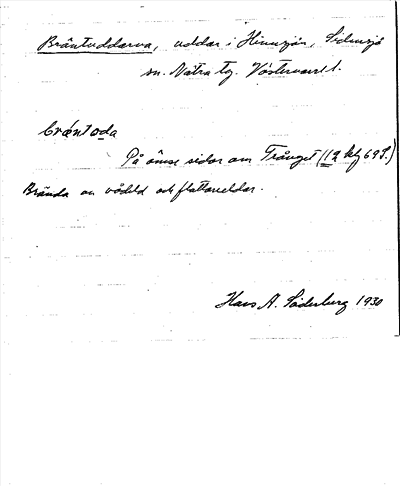 Bräntuddarna, uddar i Hinnsjön, Sidensjö
sn. Nätra tg. Västernorrl.
bräntoda
På ömse sidor om Trånget (12 bl 69 S.)
Brända av vådeld och flottareldar.
Hans A. Söderberg 1930